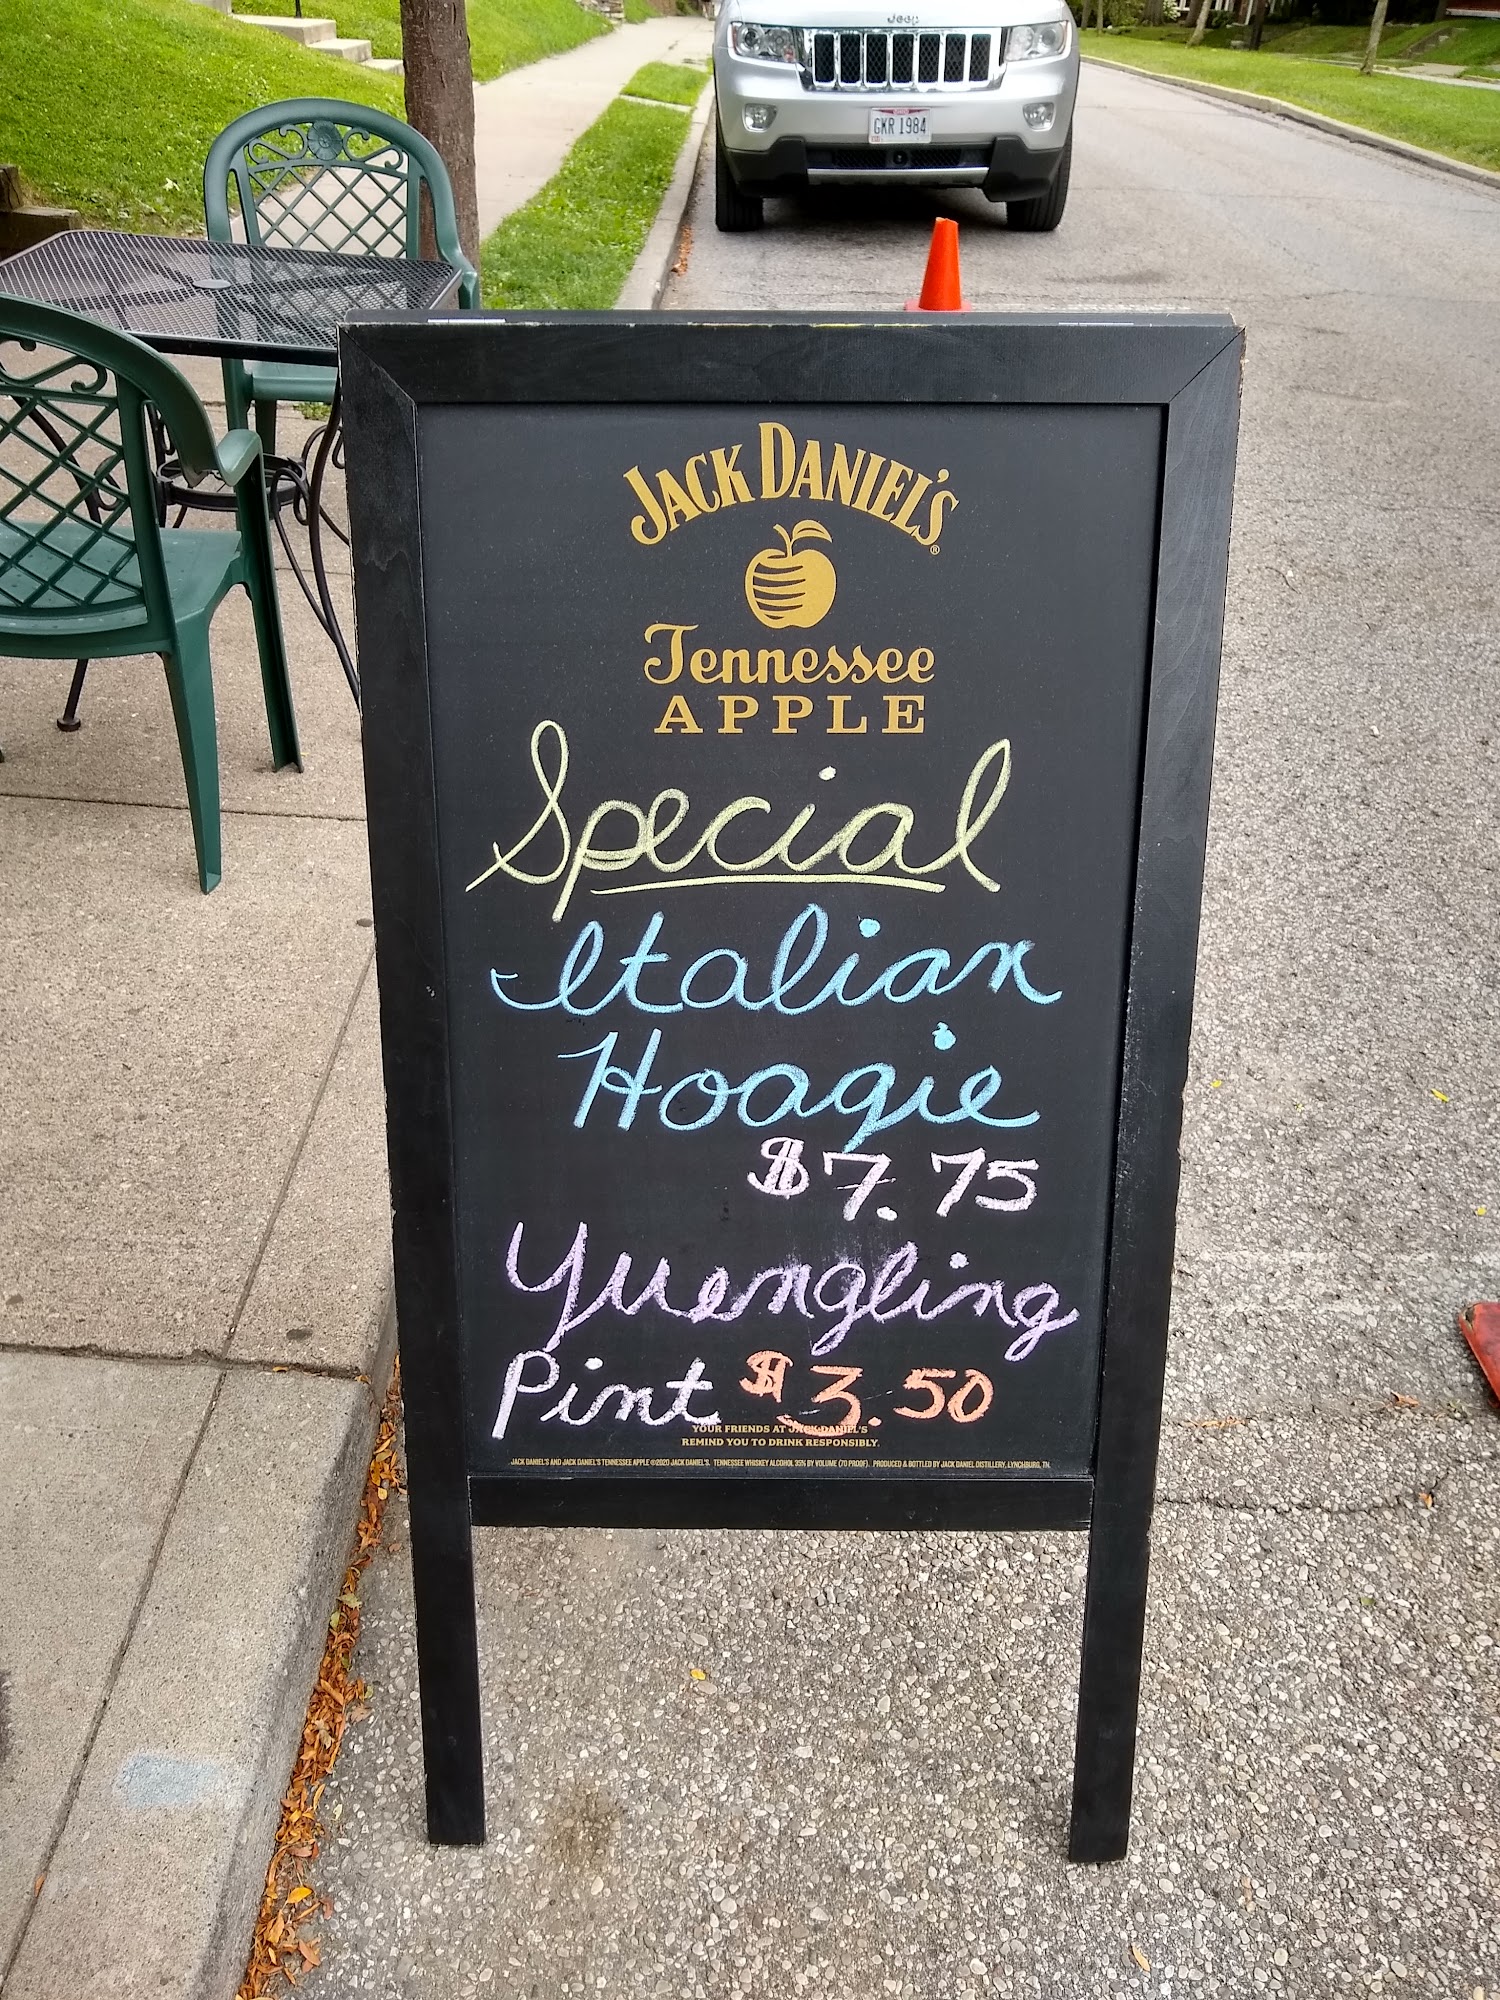 Jeep
GKR 1984
JACK DANIEL'S®
Tennessee
APPLE
Special
Italian
Hoagie
$7.75
Yuengling
Pint $3.50
YOUR FRIENDS AT JACK DANIEL'S
REMIND YOU TO DRINK RESPONSIBLY.
JACK DANIEL'S AND JACK DANIEL'S TENNESSEE APPLE ©2020 JACK DANIEL'S. TENNESSEE WHISKEY ALCOHOL 35% BY VOLUME (70 PROOF). PRODUCED & BOTTLED BY JACK DANIEL DISTILLERY, LYNCHBURG, TN.